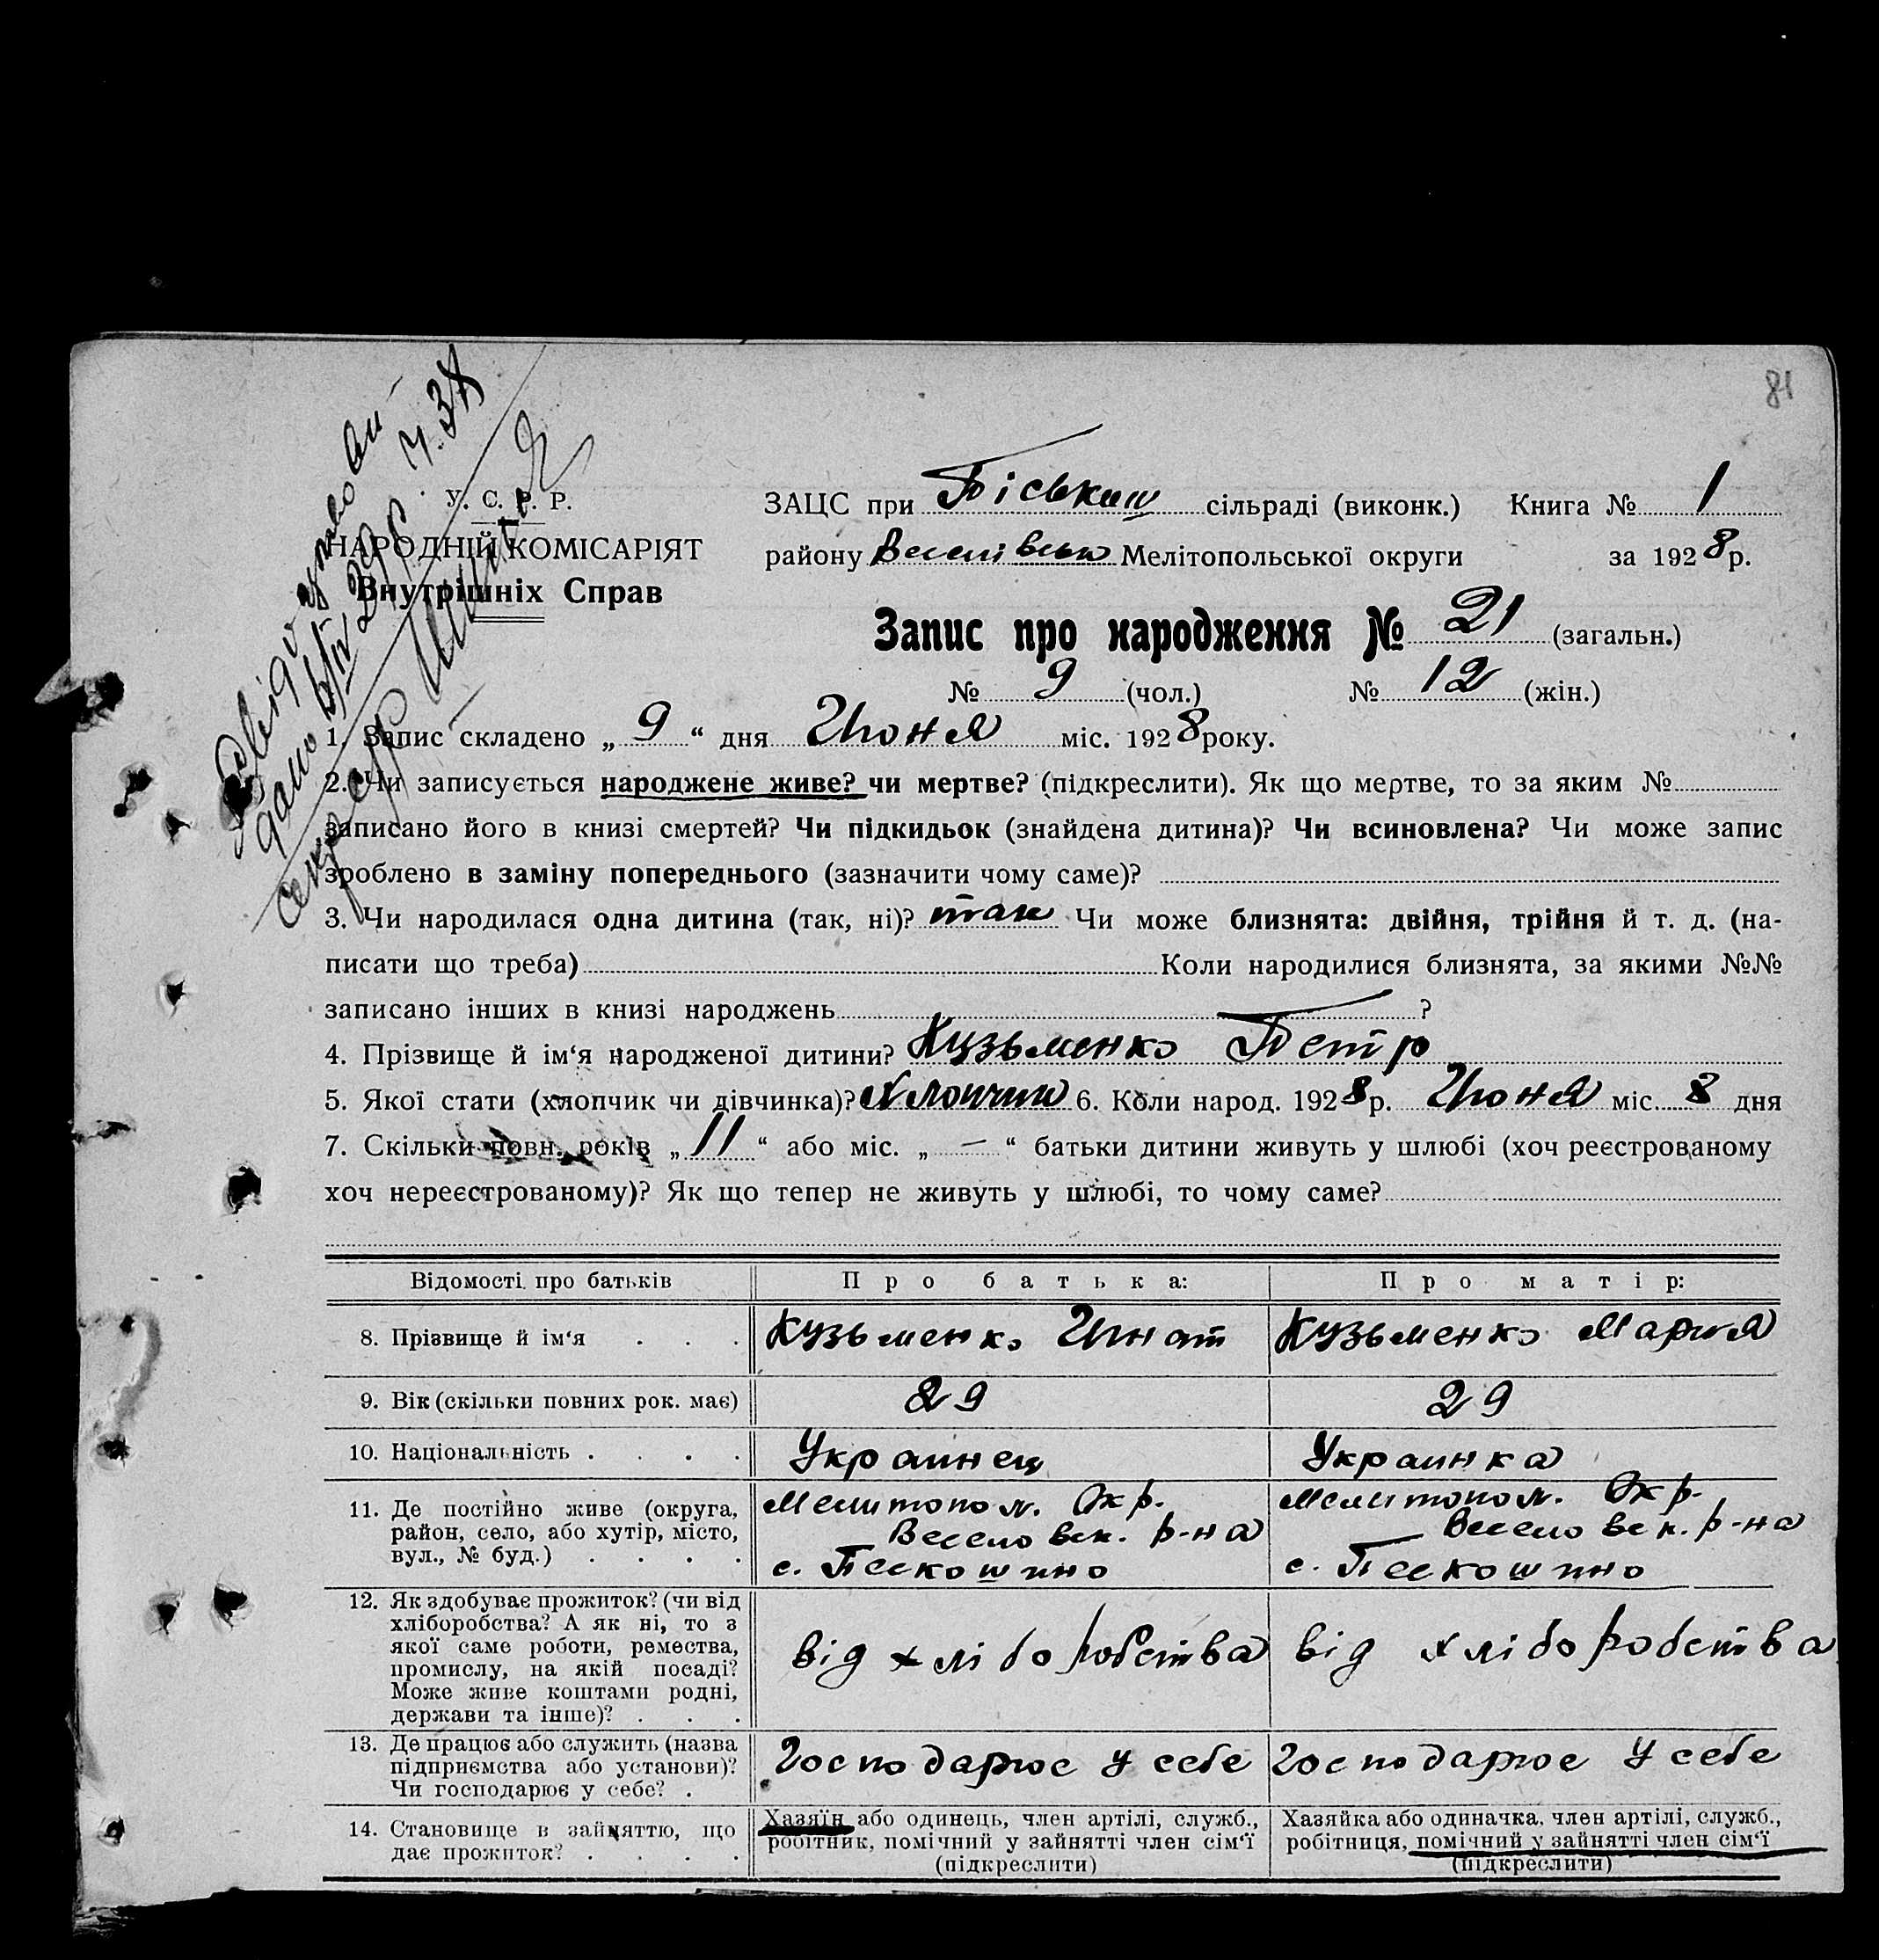 81
У. С. Р. Р.
НАРОДНІЙ КОМІСАРІЯТ
Внутрішніх Справ
ЗАЦС при Піськош сільраді (виконк.) Книга № 1
району Веселівськ Мелітопольської округи за 1928 р.
Запис про народження № 21 (загальн.)
№ 9 (чол.) № 12 (жін.)
1. Запис складено „ 9 “ дня Июня міс. 1928 року.
2. Чи записується народжене живе? чи мертве? (підкреслити). Як що мертве, то за яким №
записано його в книзі смертей? Чи підкидьок (знайдена дитина)? Чи всиновлена? Чи може запис
зроблено в заміну попереднього (зазначити чому саме)?
3. Чи народилася одна дитина (так, ні)? так Чи може близнята: двійня, трійня й т. д. (на-
писати що треба) Коли народилися близнята, за якими №№
записано інших в книзі народжень ?
4. Прізвище й ім‘я народженої дитини? Кузьменко Петр
5. Якої стати (хлопчик чи дівчинка)? Хлопчик 6. Коли народ. 1928 р. Июня міс. 8 дня
7. Скільки повн. років „ 11 “ або міс. „ — “ батьки дитини живуть у шлюбі (хоч реєстрованому
хоч нереєстрованому)? Як що тепер не живуть у шлюбі, то чому саме?
Відомості про батьків Про батька: Про матір:
8. Прізвище й ім‘я . . . Кузьменко Игнат Кузьменко Мария
9. Вік (скільки повних рок. має) 29 29
10. Національність . . . . Украинец Украинка
11. Де постійно живе (округа, Мелитопол. Окр. Мелитопол. Окр.
район, село, або хутір, місто, Веселовск. р-на Веселовск. р-на
вул., № буд.) . . . . с. Пескошино с. Пескошино
12. Як здобуває прожиток? (чи від
хліборобства? А як ні, то з
якої саме роботи, ремества,
промислу, на якій посаді? від хліборобства від хліборобства
Може живе коштами родні,
держави та інше)? . . .
13. Де працює або служить (назва
підприємства або установи)? Господарює у себе Господарює у себе
Чи господарює у себе? .
14. Становище в зайняттю, що Хазяїн або одинець, член артілі, служб., Хазяйка або одиначка, член артілі, служб.,
дає прожиток? . . . . робітник, помічний у зайнятті член сім‘ї робітниця, помічний у зайнятті член сім‘ї
(підкреслити) (підкреслити)